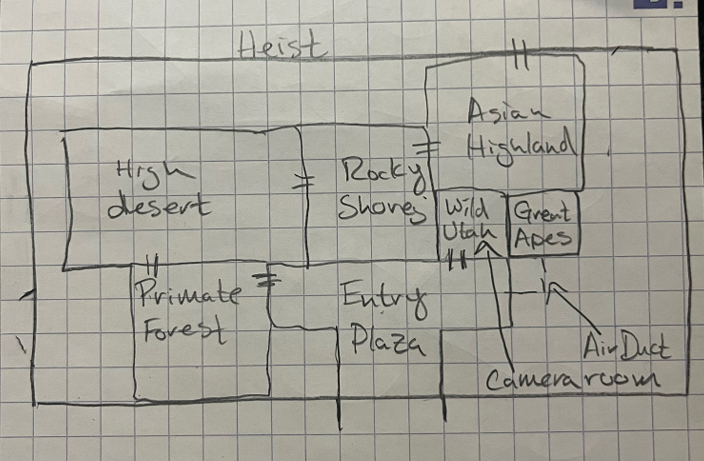 Heist
Asian
Highland
High
desert
Rocky
Shores
Wild
Utah
Great
Apes
Primate
Forest
Entry
Plaza
Air Duct
Camera room